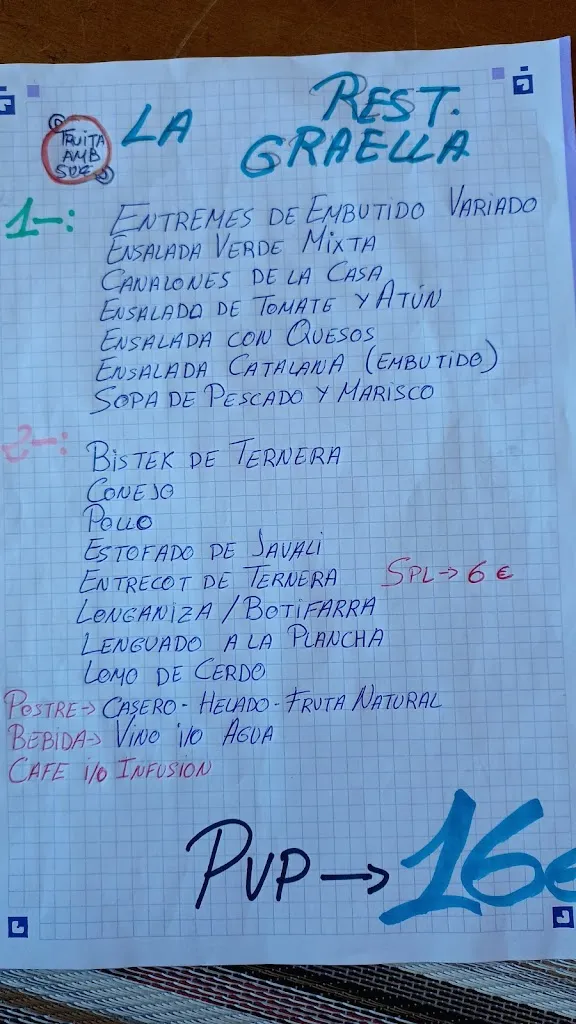 REST.
LA GRAELLA
FRUITA
AMB
SUC
1-: ENTREMES DE EMBUTIDO VARIADO
ENSALADA VERDE MIXTA
CANALONES DE LA CASA
ENSALADA DE TOMATE Y ATÚN
ENSALADA CON QUESOS
ENSALADA CATALANA (EMBUTIDO)
SOPA DE PESCADO Y MARISCO
2-: BISTEK DE TERNERA
CONEJO
POLLO
ESTOFADO DE JAVALÍ
ENTRECOT DE TERNERA SPL→ 6 €
LONGANIZA / BOTIFARRA
LENGUADO A LA PLANCHA
LOMO DE CERDO
POSTRE→ CASERO - HELADO - FRUTA NATURAL
BEBIDA→ VINO i/o AGUA
CAFE i/o INFUSION
PVP → 16€